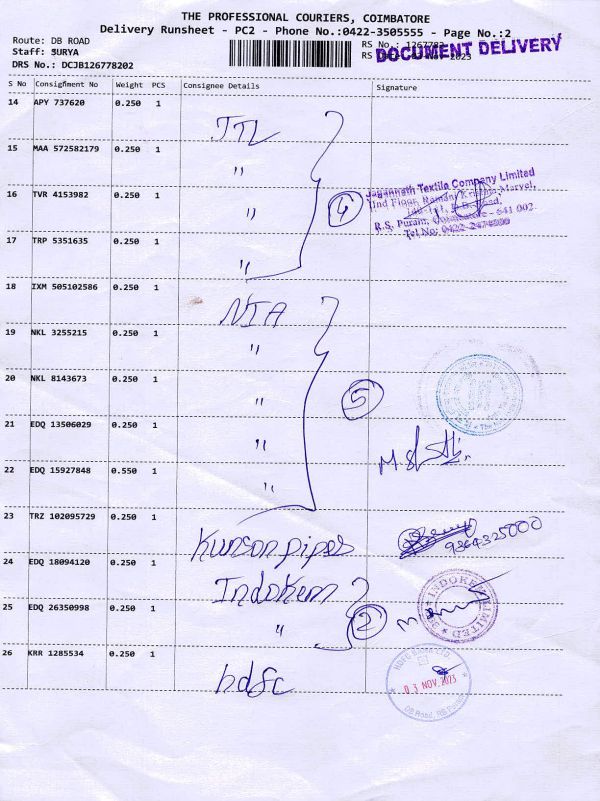 THE PROFESSIONAL COURIERS, COIMBATORE
Delivery Runsheet - PC2 - Phone No.:0422-3505555 - Page No.:2
Route: DB ROAD
Staff: SURYA
DRS No.: DCJB126778202
RS No.:
RS
2023
DOCUMENT DELIVERY
S No Consignment No Weight PCS Consignee Details Signature
14 APY 737620 0.250 1 JTL
15 MAA 572582179 0.250 1 "
16 TVR 4153982 0.250 1 " 4
Jagannath Textile Company Limited
IInd Floor,
R.S. Puram, Coimbatore - 641 002.
Tel No:
17 TRP 5351635 0.250 1 "
18 IXM 505102586 0.250 1 NIA
19 NKL 3255215 0.250 1 "
20 NKL 8143673 0.250 1 " 5
21 EDQ 13506029 0.250 1 "
22 EDQ 15927848 0.550 1 "
23 TRZ 102095729 0.250 1 Kunson pipes
9364325000
24 EDQ 18094120 0.250 1 Indokem
25 EDQ 26350998 0.250 1 " 2
INDOKEM LIMITED
26 KRR 1285534 0.250 1 hdfc
03 NOV 2023
DB Road, RS Puram